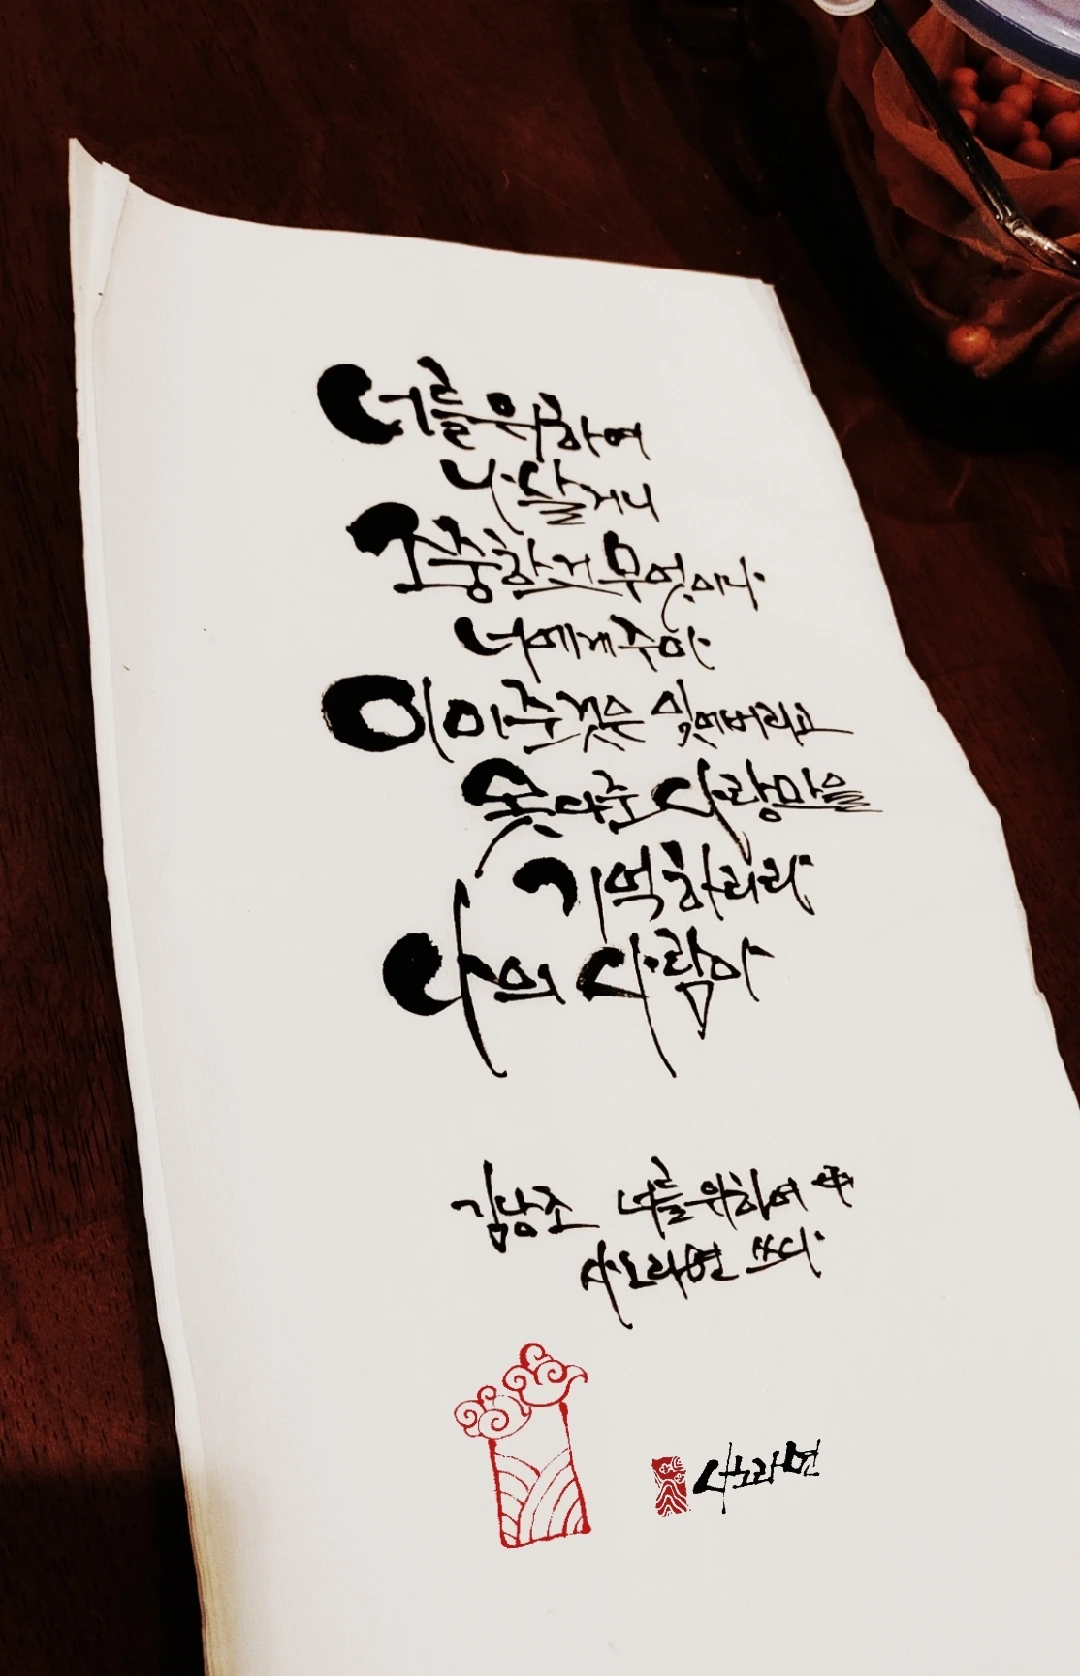 너를 위하여
나 살거니
소중한 건 무엇이나
너에게 주마
이미 준 것은 잊어버리고
못다 준 사랑만을
기억하리라
나의 사람아
김남조 너를 위하여 中
사노라면 쓰다
사노라면